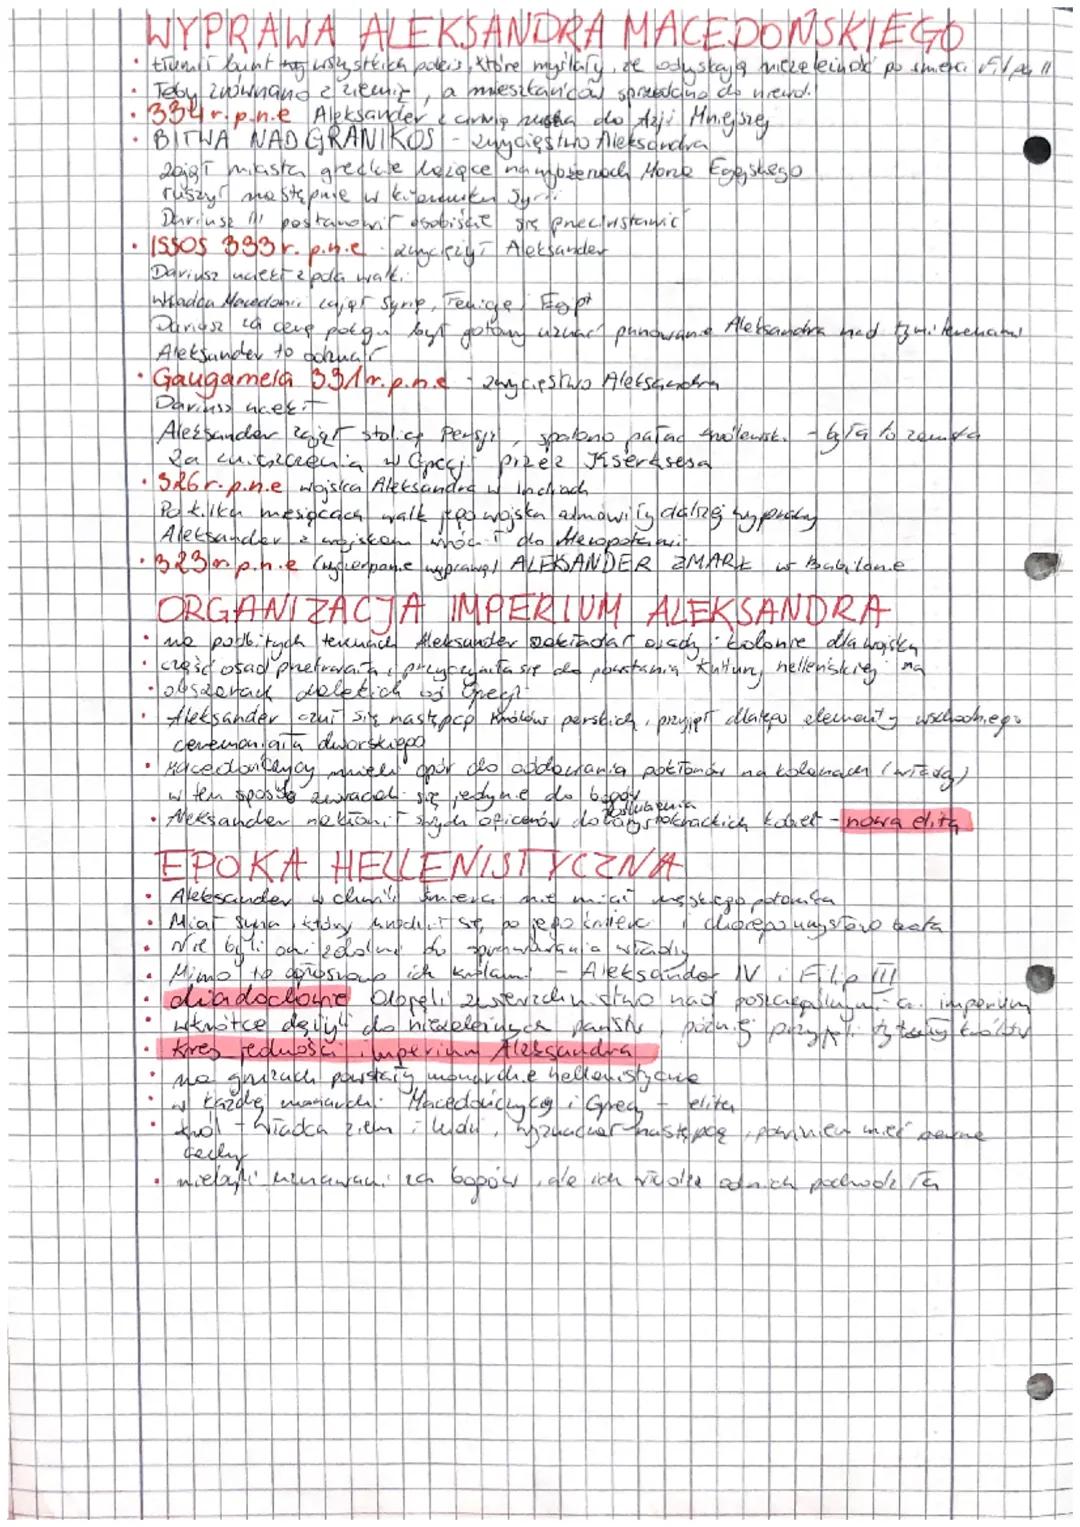 WYPRAWA ALEKSANDRA MACEDOŃSKIEGO
• tłumił bunt wszystkich poleis, które myślały, że odyskają niezależność po śmierci Filipa II
• Teby zrównano z ziemią, a mieszkańców sprzedano do niewol.
• 334 r. p.n.e Aleksander z armią rusza do Azji Mniejszej
• BITWA NAD GRANIKOS - zwycięstwo Aleksandra
zajął miasta greckie leżące na wybrzeżach Morza Egejskiego
ruszył następnie w kierunku Syrii
Dariusz III postanowił osobiście się przeciwstawić
• ISSOS 333 r. p.n.e - zwyciężył Aleksander
Dariusz uciekł z pola walki
Władca Macedonii zajął Syrię, Fenicję i Egipt
Dariusz za cenę pokoju był gotowy uznać panowanie Aleksandra nad tymi terenami
Aleksander to odrzucił
• Gaugamela 331 r. p.n.e - zwycięstwo Aleksandra
Dariusz uciekł
Aleksander zajął stolicę Persji, spalono pałac królewski - była to zemsta
za zniszczenia w Grecji przez Kserksesa
• 326 r. p.n.e wojska Aleksandra w Indiach
Po kilku miesiącach walk jego wojska odmówiły dalszej wyprawy
Aleksander z wojskiem wrócił do Mezopotamii
• 323 r. p.n.e (wyczerpanie wyprawą) ALEKSANDER ZMARŁ w Babilonie
ORGANIZACJA IMPERIUM ALEKSANDRA
• na podbitych terenach Aleksander zakładał osady i kolonie dla wojska
• część osad przetrwała i przyczyniła się do powstania kultury helleńskiej na
• obszarach dalekich od Grecji
• Aleksander czuł się następcą królów perskich, przyjął dlatego elementy wschodniego
ceremoniału dworskiego
• Macedończycy mieli opór do oddawania pokłonów na kolanach (władcy)
w ten sposób zwracali się jedynie do bogów
poślubienia
• Aleksander nakłonił swych oficerów do arystokrackich kobiet - nowa elita
EPOKA HELLENISTYCZNA
• Aleksander w chwili śmierci nie miał męskiego potomka
• Miał syna, który urodził się po jego śmierci i chorego umysłowo brata
• Nie byli oni zdolni do sprawowania władzy
• Mimo to ogłoszono ich królami - Aleksander IV i Filip III
• diadochowie objęli zwierzchnictwo nad poszczególnymi cz. imperium
• wkrótce dążyli do niezależnych państw, później przyjęli tytuły królów
• kres jedności imperium Aleksandra
• na gruzach powstały monarchie hellenistyczne
• w każdej monarchii Macedończycy i Grecy - elita
• król - władca ziem i ludu, wyznaczał następcę, powinien mieć pewne
cechy
• nie byli uznawani za bogów, ale ich władza od nich pochodziła